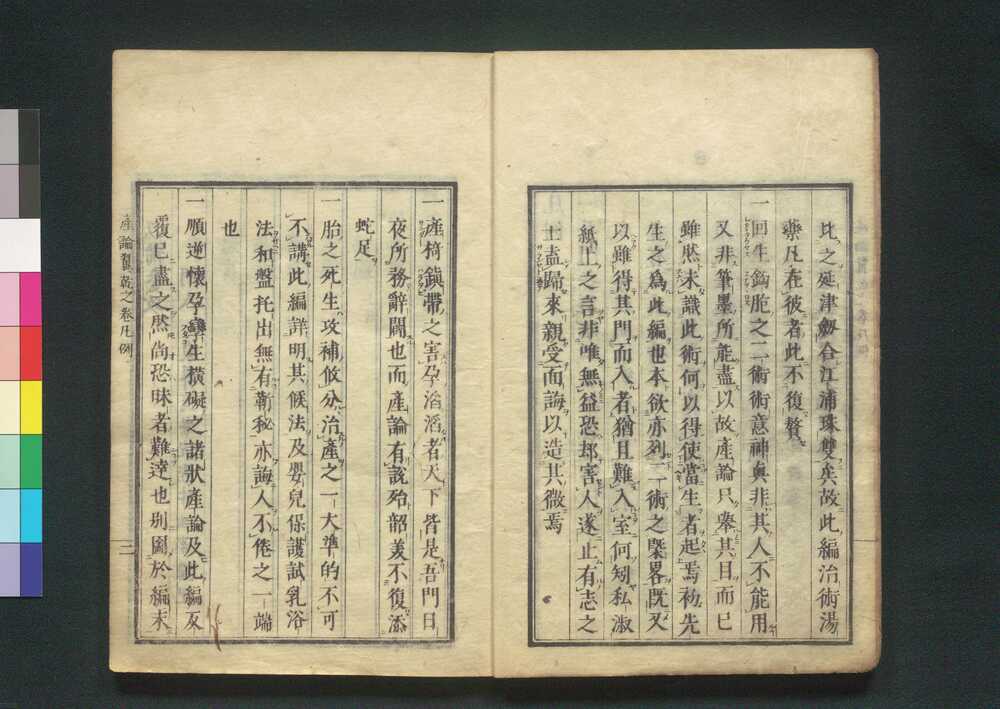 比之延津劒合江浦珠雙矣故此編治術湯
藥凡在彼者此不復贅
一回生鈎胞之二術術意神奥非其人不能用
又非筆墨所能盡以故產論只擧其目而已
雖然未識此術何以得使當生者起焉初先
生之爲此編也本欲亦列二術之槩畧既又
以雖得其門而入者猶且難入室何矧私淑
紙上之言非唯無益恐却害人遂止有志之
士盍歸來親受而誨以造其微焉
一產椅鎭帶之害孕滔滔者天下皆是吾門日
夜所務辭闢也而產論有說殆韶美不復添
蛇足
一胎之死生攻補攸分治產之一大準的不可
不講此編詳明其候法及嬰兒保護試乳浴
法和盤托出無有靳秘亦誨人不倦之一端
也
一順逆懷孕孿生橫礙之諸狀產論及此編反
覆已盡之然尚恐昧者難達也別圖於編末
產論翼乾之卷凡例
二